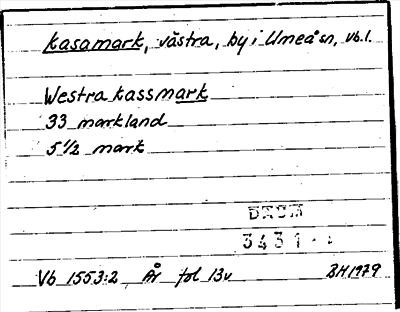 Kasamark, västra, by i Umeå sn, Vb.l.
Westra kassmark
33 markland
5 1/2 mark
3431
Vb 1553:2 År fol 13v BH1979